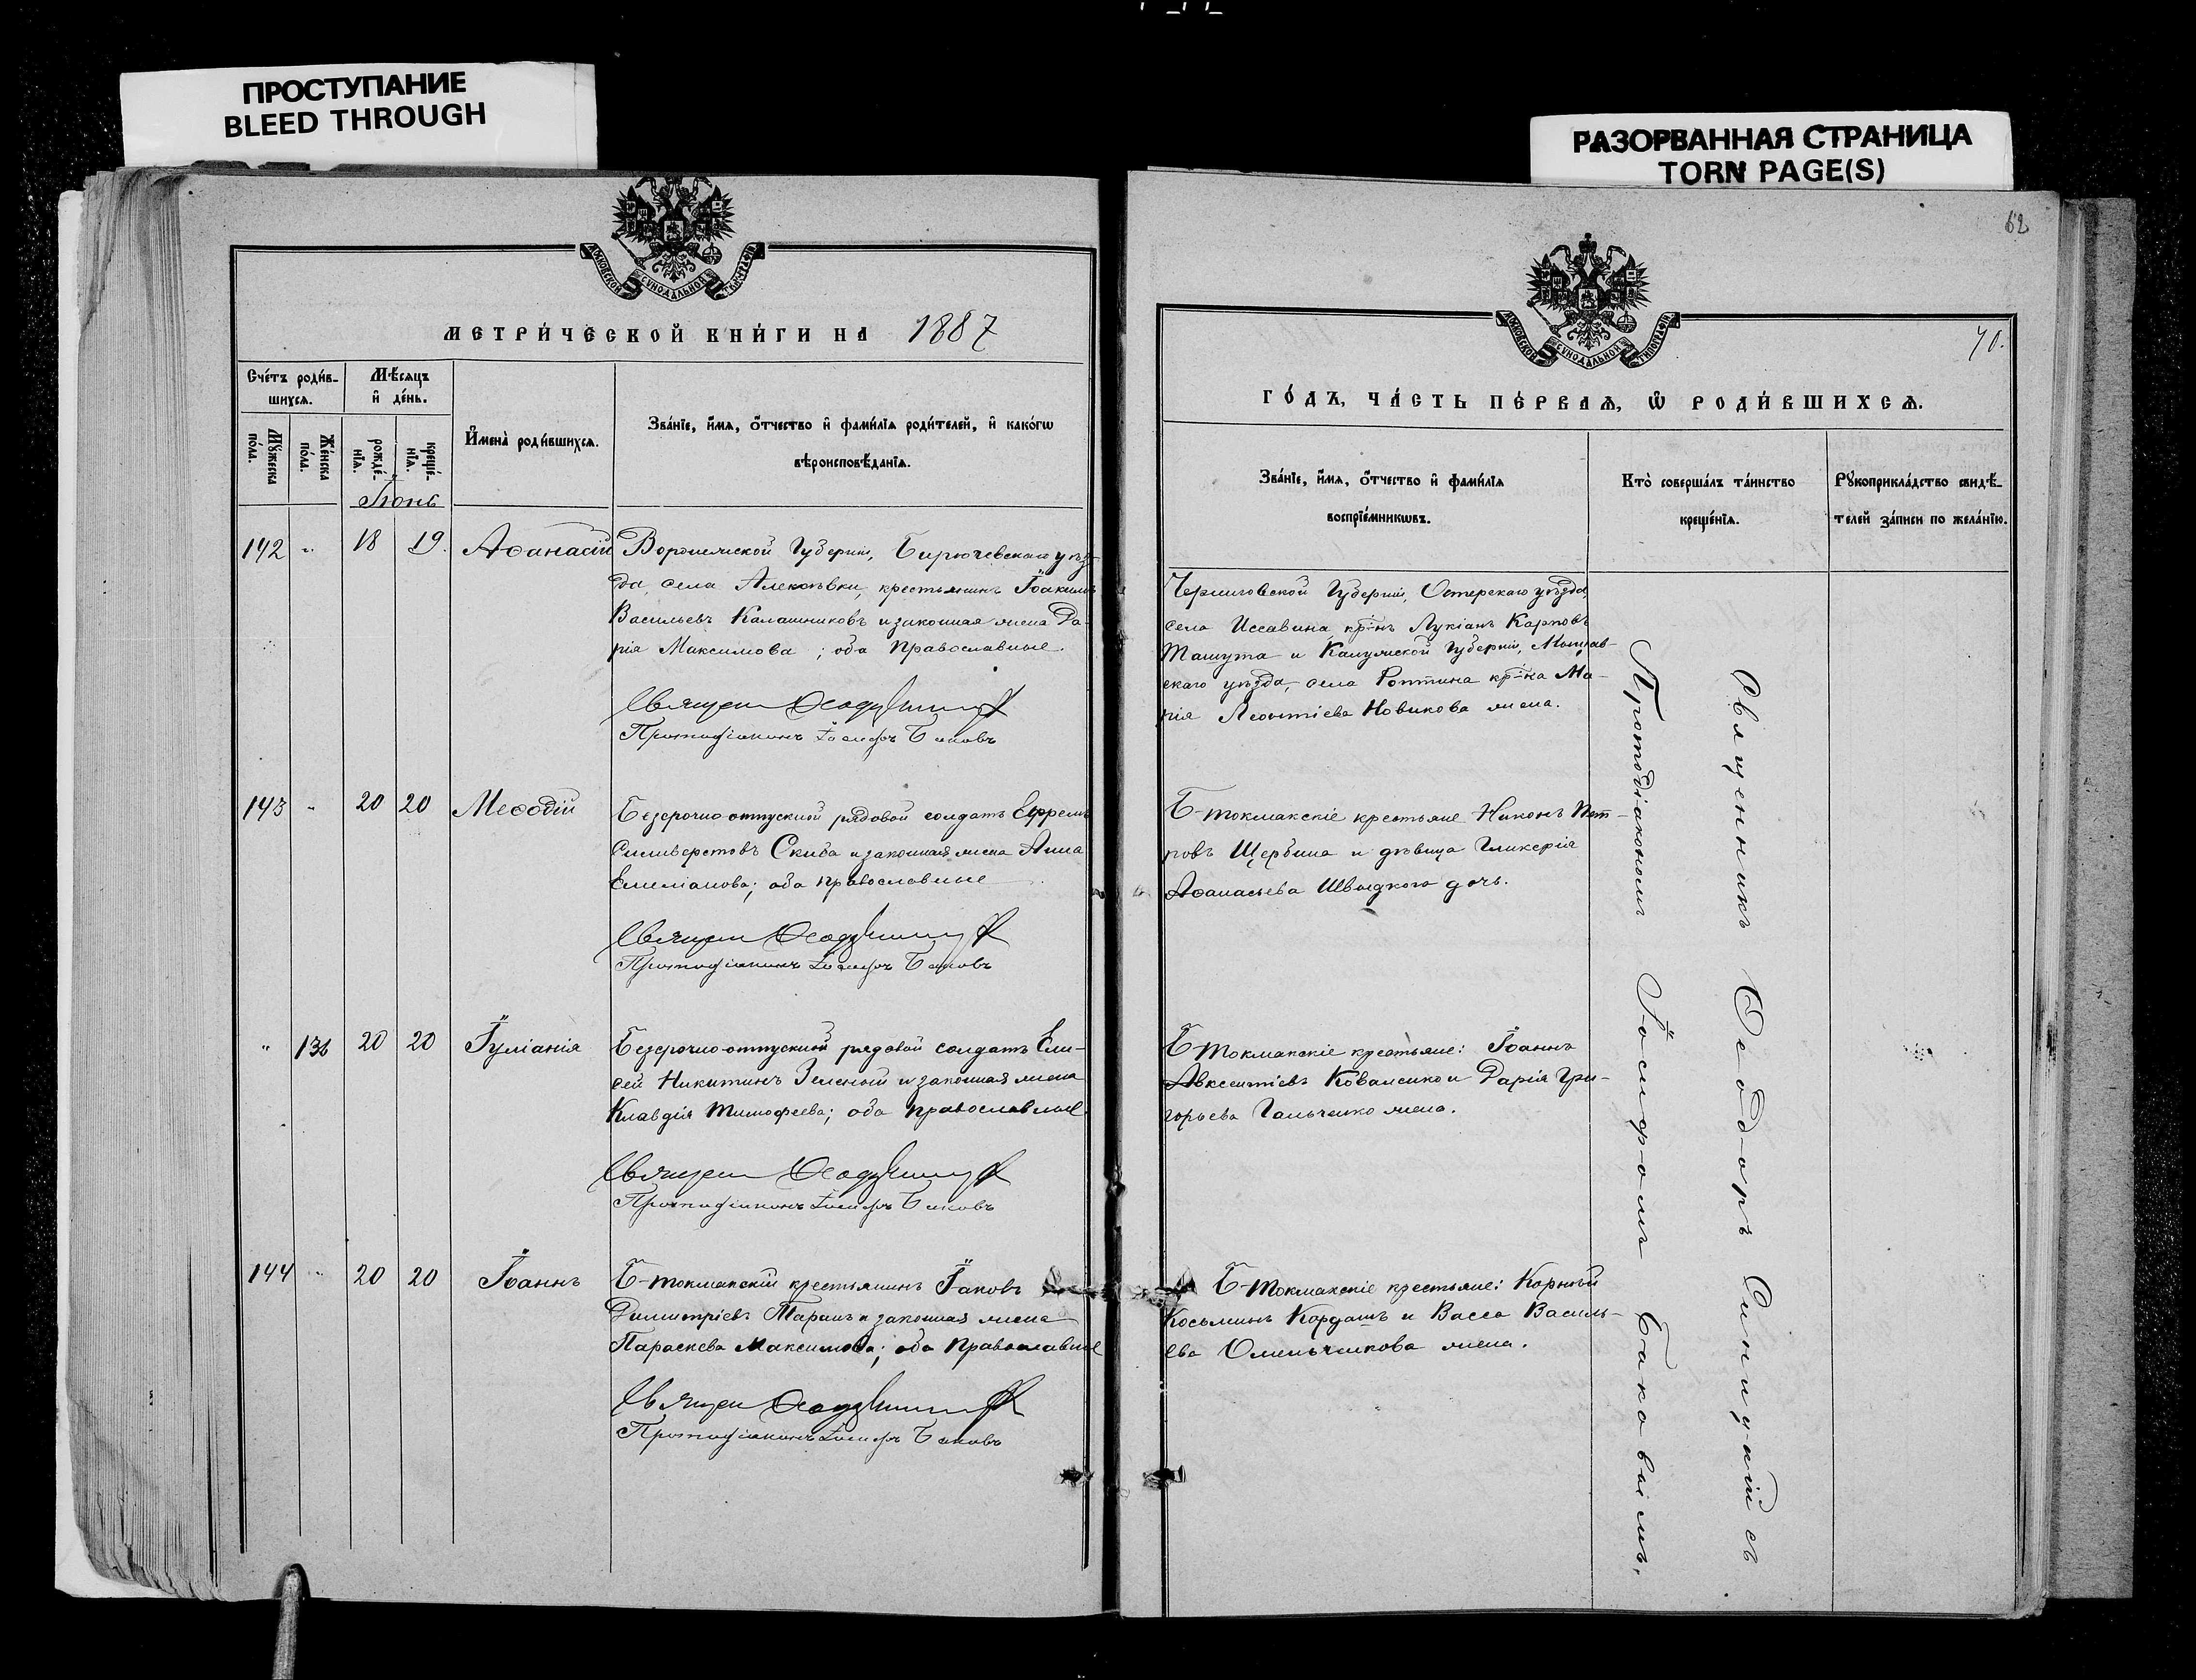 ПРОСТУПАНИЕ
BLEED THROUGH
РАЗОРВАННАЯ СТРАНИЦА
TORN PAGE(S)
МОСКОВСКОЙ СУНОДАЛЬНОЙ ТИПОГРАФІИ
МЕТРИ́ЧЕСКОЙ КНИ́ГИ НА 1887
Сче́тъ роди́в-
шихсѧ.
Мѣ́сѧцъ
и҆ де́нь.
Мꙋ́жеска
по́ла.
Же́нска
по́ла.
рожде́-
нїѧ.
креще́-
нїѧ.
И҆мена̀ роди́вшихсѧ.
Зва́нїе, и҆́мѧ, ѻ҆́тчество и҆ фами́лїѧ роди́телей, и҆ како́гѡ
вѣроисповѣ́данїѧ.
Іюнь
142 " 18 19. Аѳанасій
Воронежской Губерніи, Бирюченскаго уѣз-
да, села Алексѣевки, крестьянинъ Іоакимъ
Васильевъ Калашниковъ и законная жена Да-
рія Максимова; оба Православные.
Священ
Протодіаконъ Іосифъ Баковъ
143 " 20 20 Меѳодій
Безсрочно-отпускной рядовой солдатъ Ефремъ
Сильверстовъ Скиба и законная жена Анна
Емеліанова; оба православные
Священ
Протодіаконъ Іосифъ Баковъ
" 136 20 20 Іуліанія
Безсрочно-отпускной рядовой солдатъ Ели-
сей Никитинъ Зеленый и законная жена
Клавдія Тимофеева; оба православные
Священ
Протодіаконъ Іосифъ Баковъ
144 " 20 20 Іоаннъ
Б-токмакскій крестьянинъ Іаковъ
Димитріевъ Таранъ и законная жена
Параскева Максимова; оба Православные
Священ
Протодіаконъ Іосифъ Баковъ
62
МОСКОВСКОЙ СУНОДАЛЬНОЙ ТИПОГРАФІИ
70.
ГО́ДЪ, ЧА́СТЬ ПЕ́РВАѦ, Ѡ҆ РОДИ́ВШИХСѦ.
Зва́нїе, и҆́мѧ, ѻ҆́тчество и҆ фами́лїѧ
воспрїе́мникѡвъ.
Кто̀ соверша́лъ та́инство
креще́нїѧ.
Рꙋкоприкла́дство свидѣ́-
телей за́писи по жела́нїю.
Черниговской Губерніи, Остерскаго уѣзда,
села кр-нъ Лукіанъ Карповъ
Ташута и Калужской Губерніи,
скаго уѣзда, села кр-ка Ма-
рія Леонтіева Новикова жена.
Б-токмакскіе крестьяне Никонъ Пет-
ровъ Щербина и дѣвица Гликерія
Аѳанасьева Швыдкого дочь.
Б-токмакскіе крестьяне: Іоаннъ
Авксентіевъ Коваленко и Дарія Гри-
горьева Гальченко жена.
Б-токмакскіе крестьяне: Корнилій
Косьминъ Кардашъ и Васса Василь-
ева Омельченкова жена.
Священникъ Ѳеодоръ Синицкій съ
Протодіакономъ Іосифомъ Баковымъ.